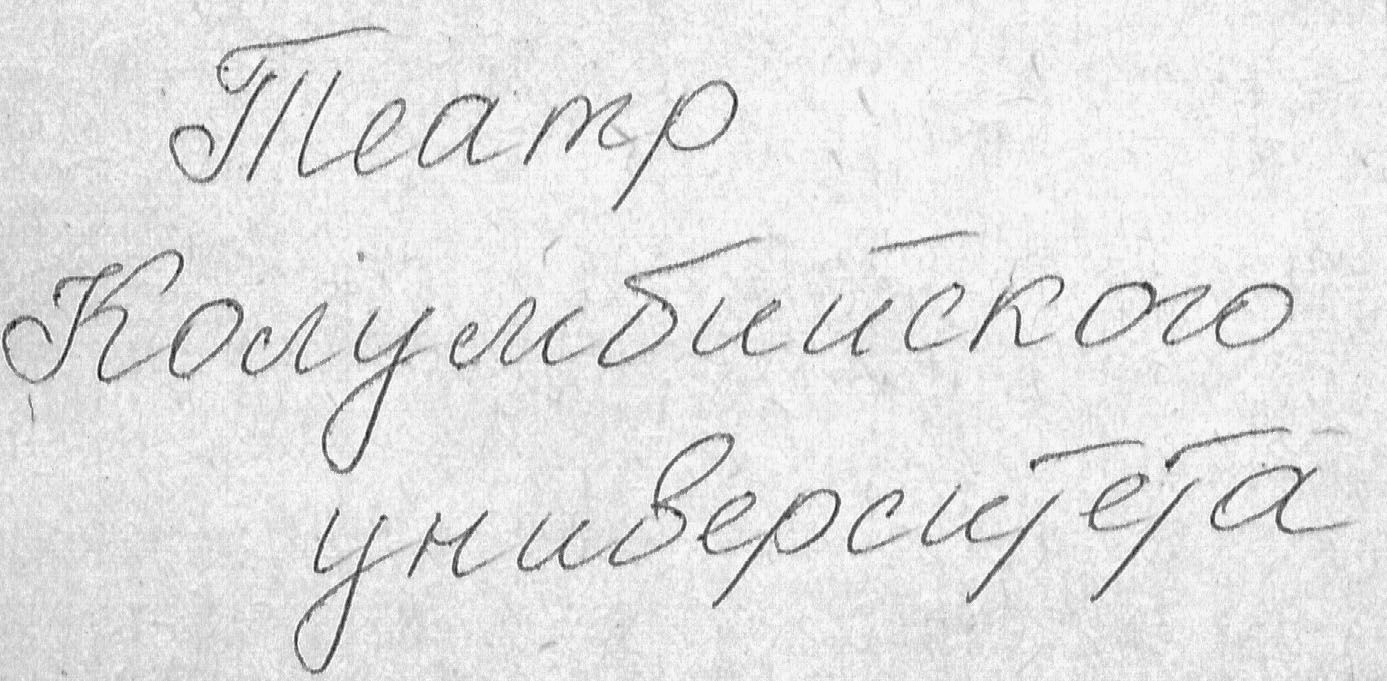 Театр
Колумбийского
университета